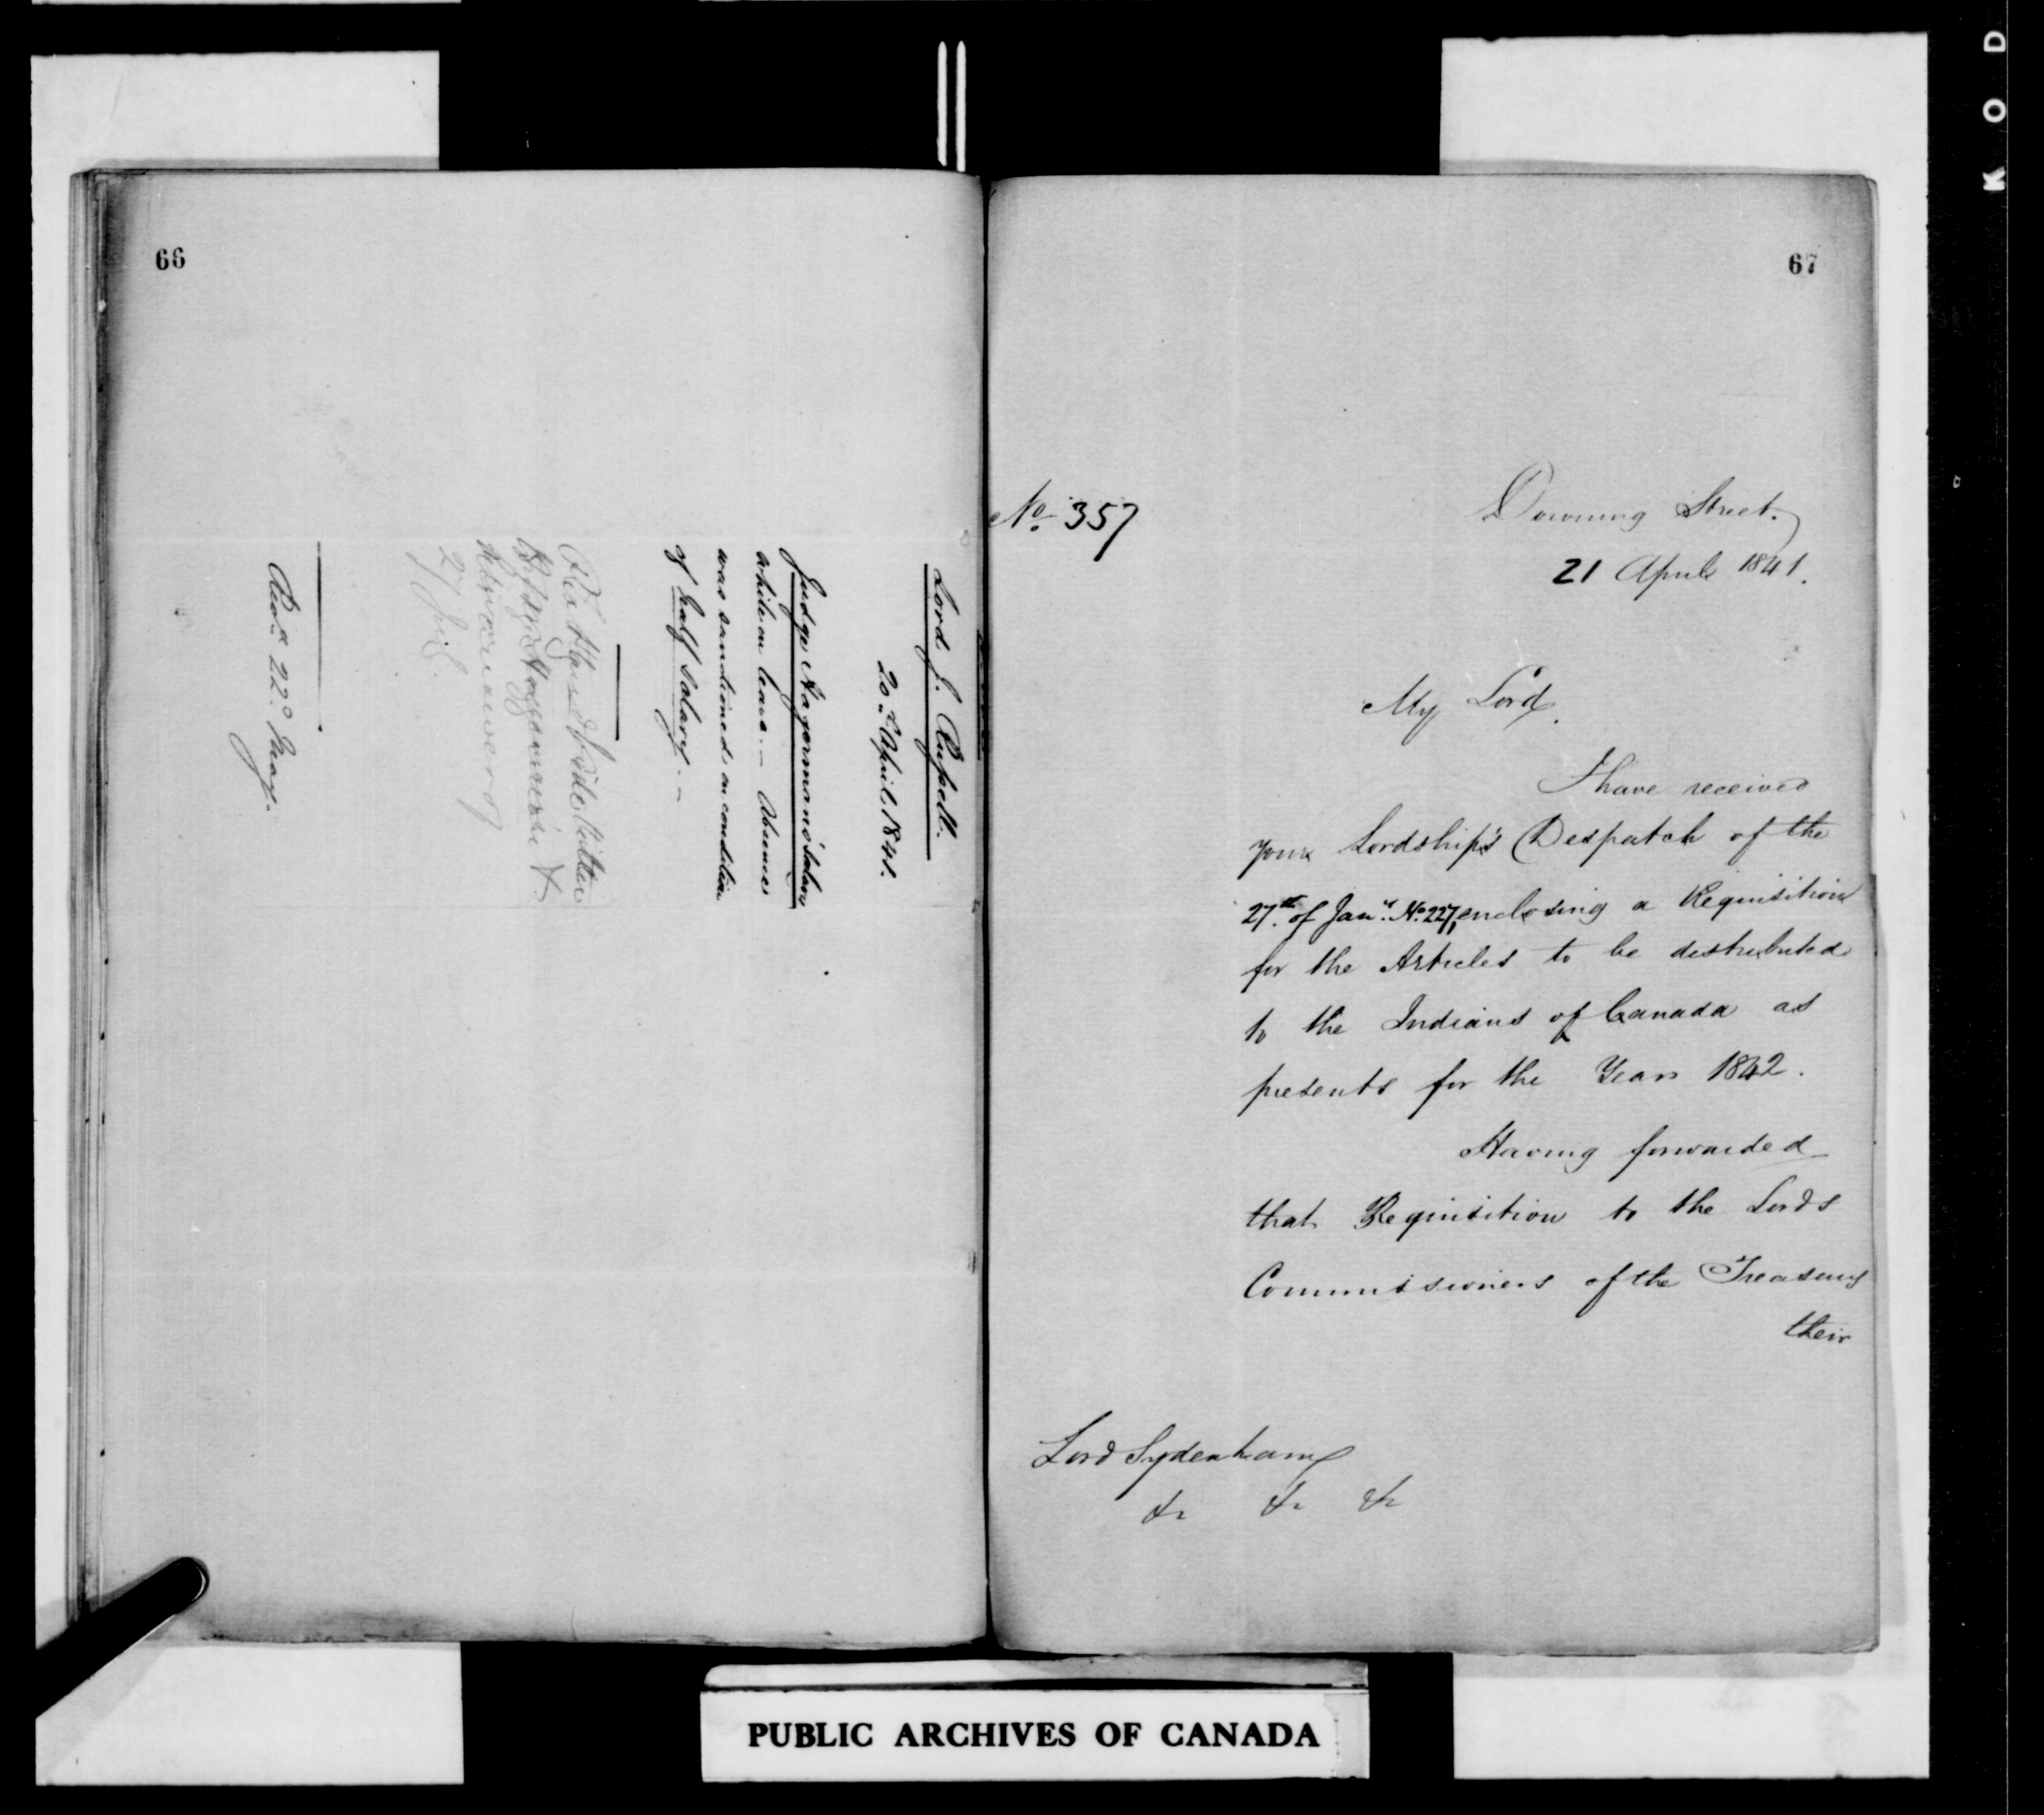 66
Lord J. Russell.
20th April 1841.
Judge Hagerman's Salary
while on leave. – Absence
was sanctioned on condition
of half Salary. –
27 Jul.
Recd 22d May.
67
No. 357
Downing Street.
21 April 1841.
My Lord,
I have received
your Lordship's Despatch of the
27th of Jany. No. 227, enclosing a Requisition
for the Articles to be distributed
to the Indians of Canada as
presents for the Year 1842.
Having forwarded
that Requisition to the Lords
Commissioners of the Treasury
their
Lord Sydenham
&c &c &c
PUBLIC ARCHIVES OF CANADA
K O D